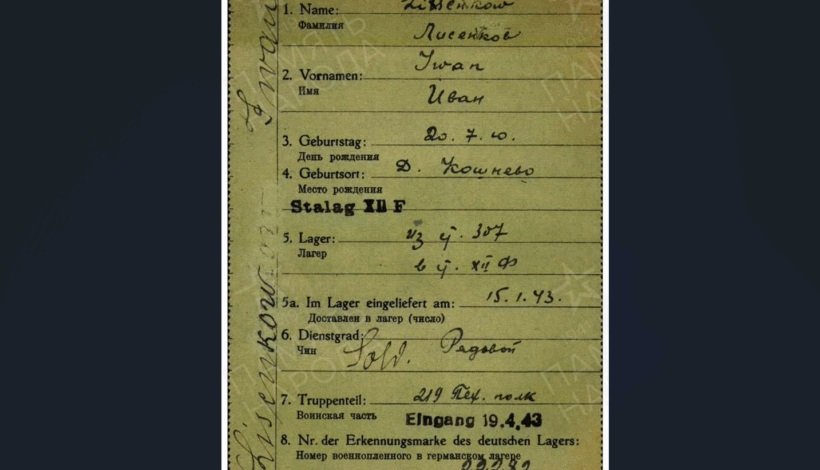 1. Name: Lissenkow
Фамилия
Лисенков
Iwan
2. Vornamen:
Имя
Иван
3. Geburtstag: 20. 7. 10.
День рождения
4. Geburtsort: Д. Кошнево
Место рождения
Stalag XII F
5. Lager: из ц. 307
Лагер
в ц. XII Ф
5a. Im Lager eingeliefert am: 15. 1. 43.
Доставлен в лагер (число)
6. Dienstgrad: Sold. Рядовой
Чин
7. Truppenteil: 219 Пех. полк
Воинская часть
Eingang 19.4.43
8. Nr. der Erkennungsmarke des deutschen Lagers:
Номер военнопленного в германском лагере
Lisenkow Iwan
ПАМЯТЬ НАРОДА